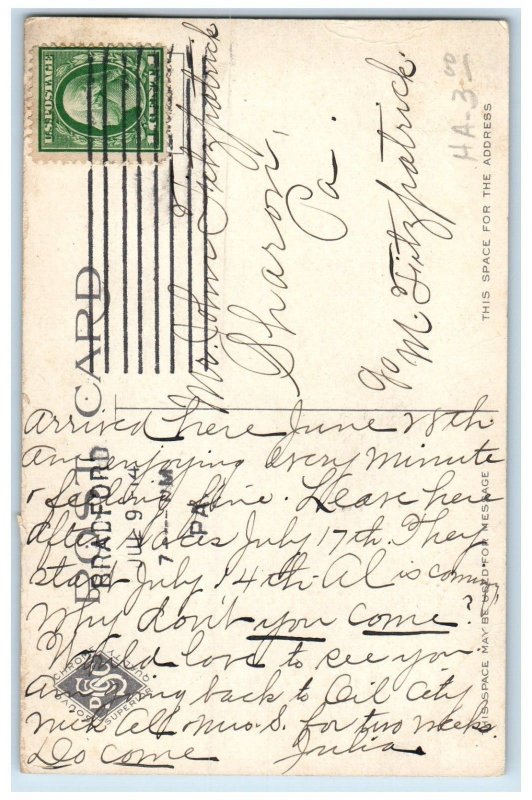 U.S. POSTAGE
1 CENT 1
POST CARD
BRADFORD
JUL 9
7 PM
PA.
HA-3-00
THIS SPACE FOR THE ADDRESS
Mr. John Fitzpatrick
Sharon,
Pa.
c/o M. Fitzpatrick
THIS SPACE MAY BE USED FOR MESSAGE
arrived here June 28th.
Am enjoying every minute
& feeling fine. Leave here
after races July 17th. They
start July 14th. Al is coming
Why don't you come?
Would love to see you.
Am going back to Oil City
with Al & Mrs. S. for two weeks.
Do come. Julia.
CHROME
QUALITY
SUPERIOR